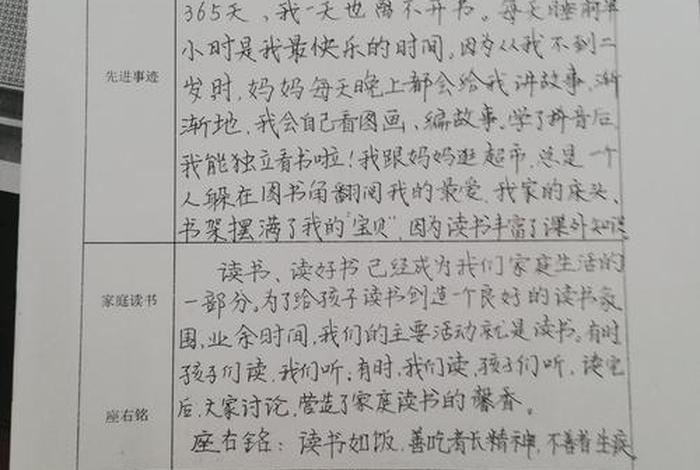 365天、我一天也离不开书。每天睡前半
小时是我最快乐的时间。因为从我不到二
先进事迹
岁时,妈妈每天晚上都会给我讲故事,渐
渐地,我会自己看图画、编故事。学了拼音后,
我能独立看书啦!我跟妈妈逛超市,总是一个
人躲在图书角翻阅我的最爱。我家的床头、
书架摆满了我的"宝贝",因为读书丰富了课外知识
读书、读好书已经成为我们家庭生活的
家庭读书
一部分。为了给孩子读书创造一个良好的读书氛
围,业余时间,我们的主要活动就是读书。有时
孩子们读,我们听;有时,我们读,孩子们听,读完
后,大家讨论,营造了家庭读书的馨香。
座右铭
座右铭:读书如饭,善吃者长精神,不善者生疾